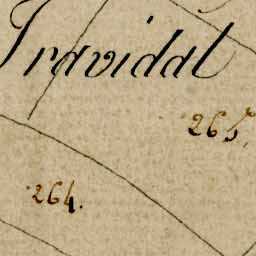 Travidal
265.
264.